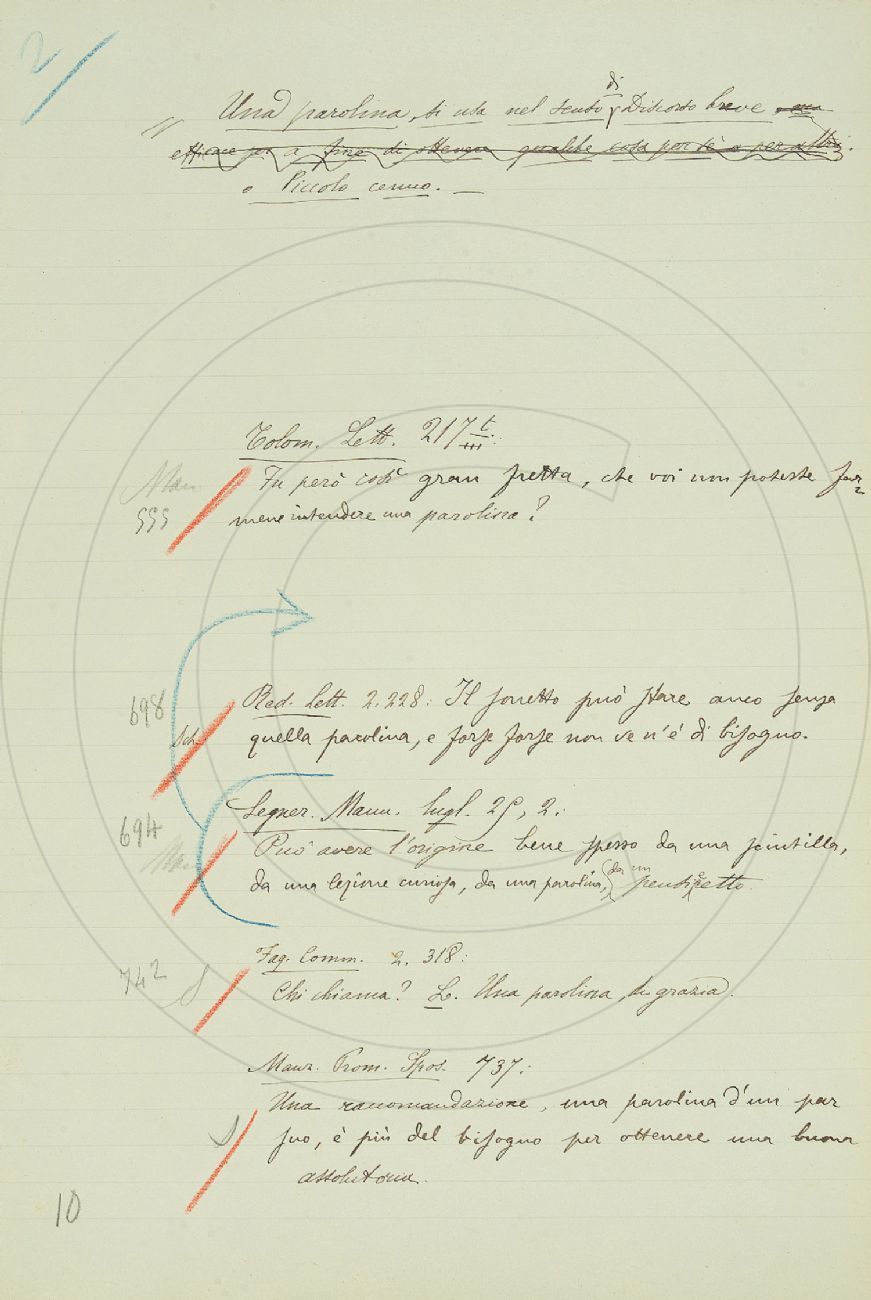 2
" Una parolina, si usa nel senso di Discorso breve ma
efficace per a fine di ottenere qualche cosa per sè o per altri.
o Piccolo cenno. —
Tolom. Lett. 217 t/III:
Man Fu però così gran fretta, che voi non poteste far=
555 mene intendere una parolina?
698 Red. Lett. 2. 228: Il sonetto può stare anco senza
Sch. quella parolina, e forse forse non ve n'è di bisogno.
694 Segner. Mann. lugl. 25, 2.:
Man Può avere l'origine bene spesso da una scintilla,
da una lezione curiosa, da una parolina, (da un) pensieretto.
742 Fag. Comm. 2. 318:
S Chi chiama? L. Una parolina in grazia.
Manz. Prom. Spos. 737.:
Una raccomandazione, una parolina d'un par
S suo, è più del bisogno per ottenere una buona
assolutoria.
10